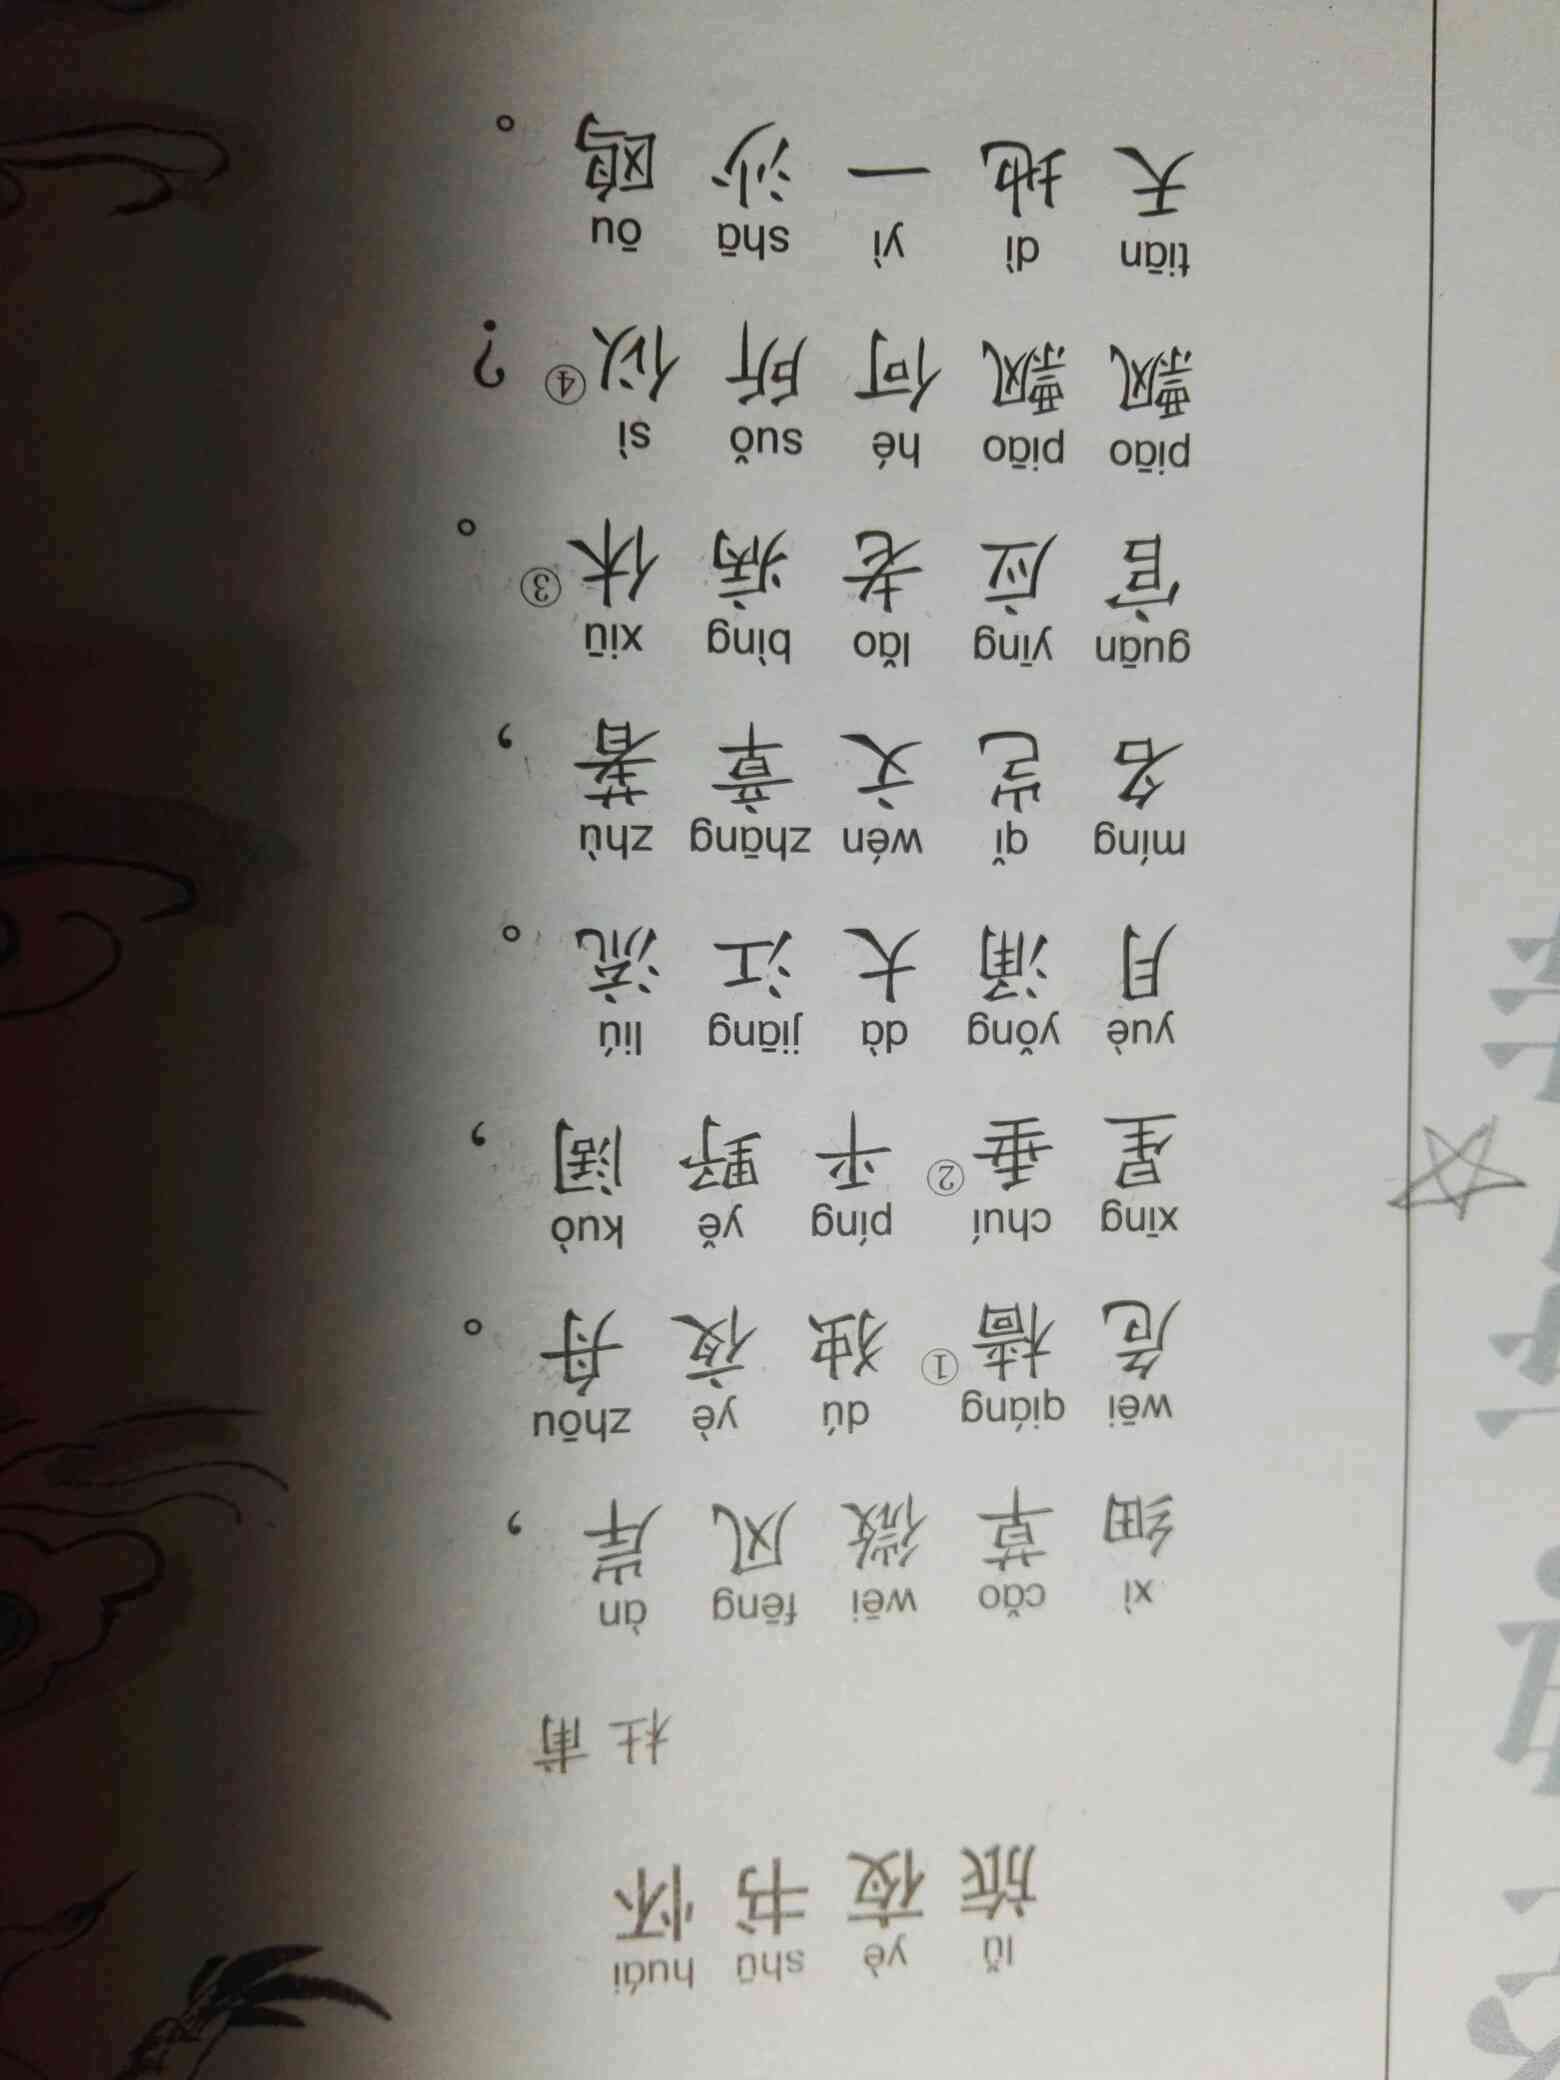 lǚ yè shū huái
旅夜书怀
杜甫
xì cǎo wēi fēng àn
细草微风岸，
wēi qiáng dú yè zhōu
危樯①独夜舟。
xīng chuí píng yě kuò
星垂②平野阔，
yuè yǒng dà jiāng liú
月涌大江流。
míng qǐ wén zhāng zhù
名岂文章著，
guān yīng lǎo bìng xiū
官应老病休③。
piāo piāo hé suǒ sì
飘飘何所似④？
tiān dì yì shā ōu
天地一沙鸥。